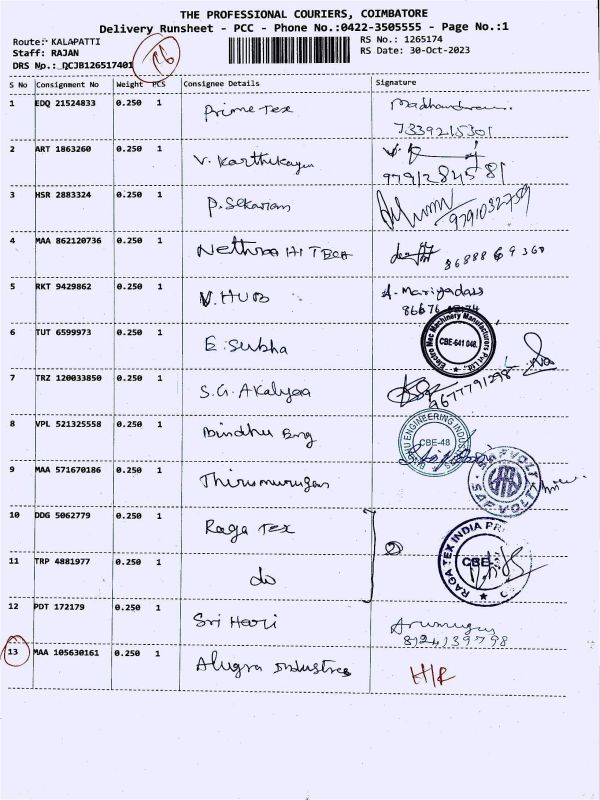 THE PROFESSIONAL COURIERS, COIMBATORE
Delivery Runsheet - PCC - Phone No.:0422-3505555 - Page No.:1
Route: KALAPATTI RS No.: 1265174
Staff: RAJAN RS Date: 30-Oct-2023
DRS No.: DCJB126517401
S No Consignment No Weight PCS Consignee Details Signature
1 EDQ 21524833 0.250 1 Prime Tex
7339215301
2 ART 1863260 0.250 1 V. Karthikayan
9791284581
3 HSR 2883324 0.250 1 P. Sekaran
9791032759
4 MAA 862120736 0.250 1 Nethraa HI TECH
5 RKT 9429862 0.250 1 V. HUB A. Mariyadass
6 TUT 6599973 0.250 1 E. Subha
Electro Mec Machinery Manufacturers Pvt Ltd., CBE-641 048.
7 TRZ 120033850 0.250 1 S.G. Akalyaa
9677791298
8 VPL 521325558 0.250 1 Bindhu Eng
ENGINEERING INDUS CBE-48
9 MAA 571670186 0.250 1 Thirumurugan
SAF-VOLT SAF-VOLT
10 DDG 5062779 0.250 1 Raga Tex
RAGA TEX INDIA PR CBE
11 TRP 4881977 0.250 1 do
12 PDT 172179 0.250 1 Sri Hari Arumugam
8124139798
13 MAA 105630161 0.250 1 Industries H/R